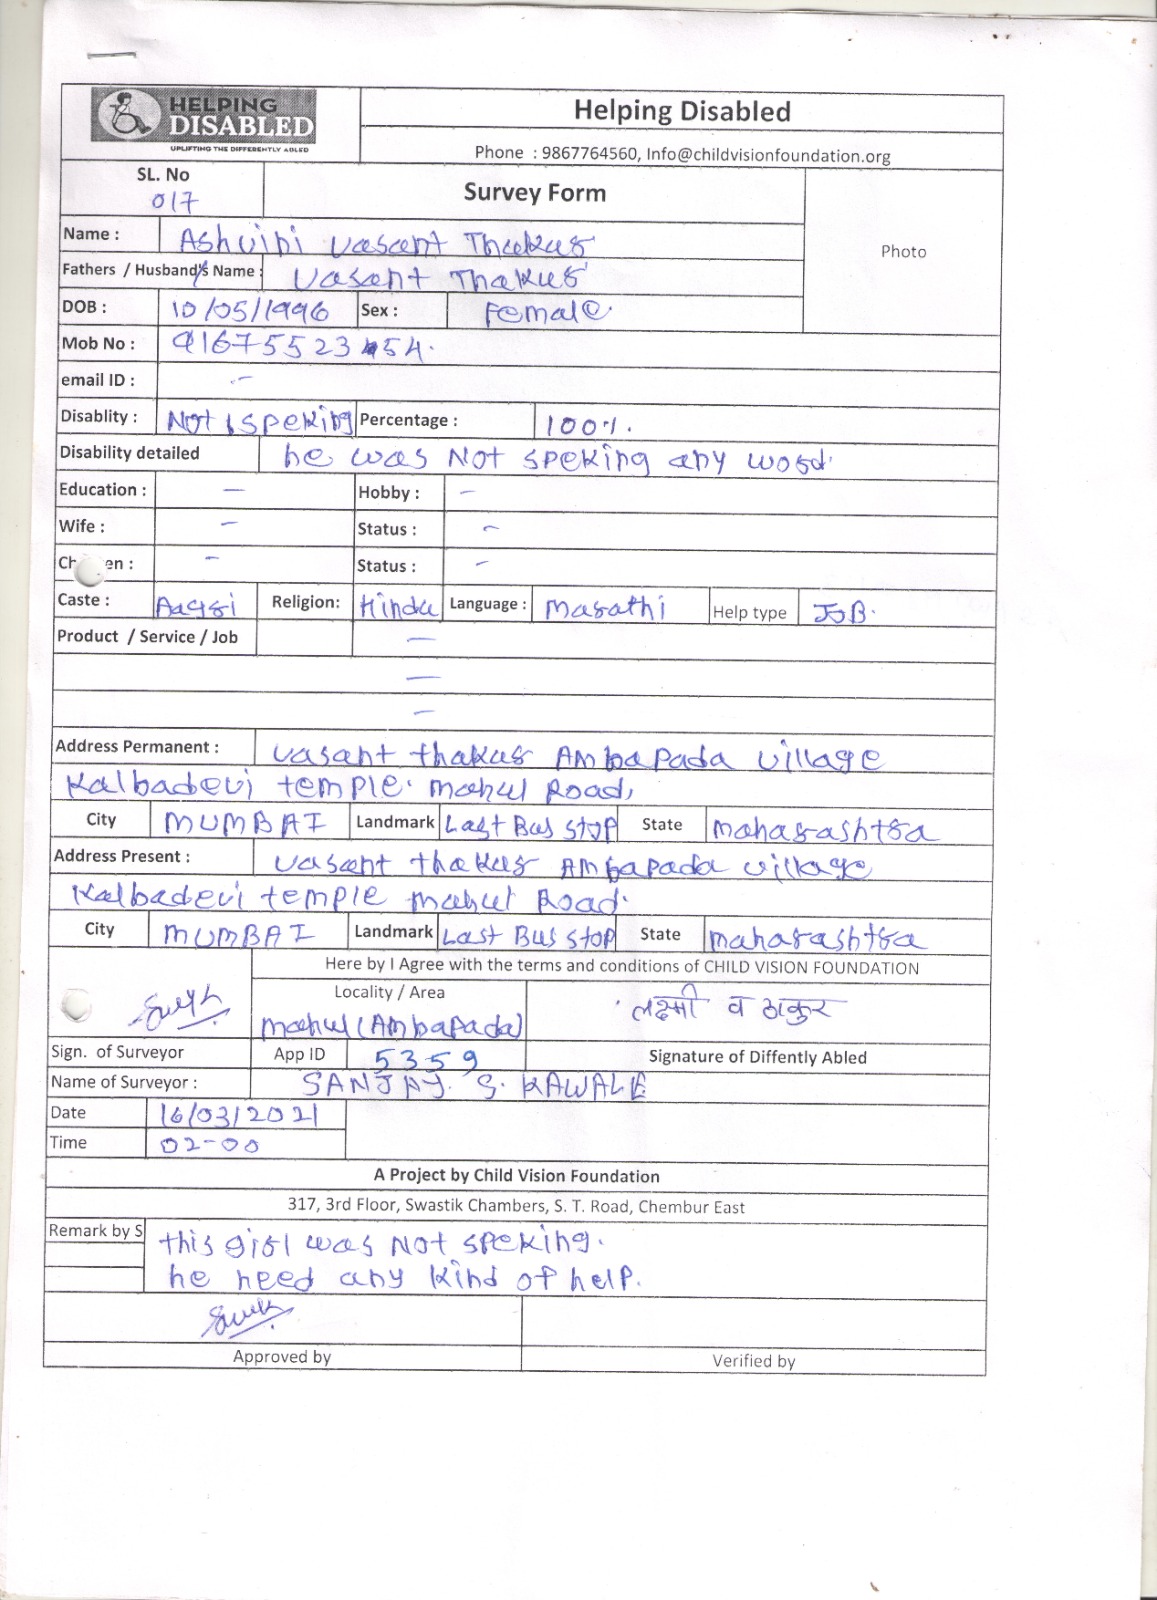 HELPING
DISABLED
UPLIFTING THE DIFFERENTLY ABLED
Helping Disabled
Phone : 9867764560, Info@childvisionfoundation.org
SL. No
017
Survey Form
Photo
Name : Ashvini Vasant Thakur
Fathers / Husband's Name : Vasant Thakur
DOB : 10/05/1996 Sex : Female
Mob No : 9167552354.
email ID : -
Disablity : Not speking Percentage : 100%.
Disability detailed he was Not speking any word.
Education : - Hobby : -
Wife : - Status : -
Ch en : - Status : -
Caste : Aagri Religion: Hindu Language : Marathi Help type JOB.
Product / Service / Job -
-
-
Address Permanent : vasant thakur Ambapada village
Kalbadevi temple. mahul Road,
City MUMBAI Landmark Last Bus stop State maharashtra
Address Present : vasant thakur Ambapada village
Kalbadevi temple mahul Road.
City MUMBAI Landmark Last Bus stop State maharashtra
Here by I Agree with the terms and conditions of CHILD VISION FOUNDATION
Locality / Area
mahul (Ambapada)
लक्ष्मी व ठाकुर
Sign. of Surveyor App ID 5359 Signature of Diffently Abled
Name of Surveyor : SANJAY. S. KAWALE
Date 16/03/2021
Time 02-00
A Project by Child Vision Foundation
317, 3rd Floor, Swastik Chambers, S. T. Road, Chembur East
Remark by S this girl was Not speking.
he need any kind of help.
Approved by Verified by